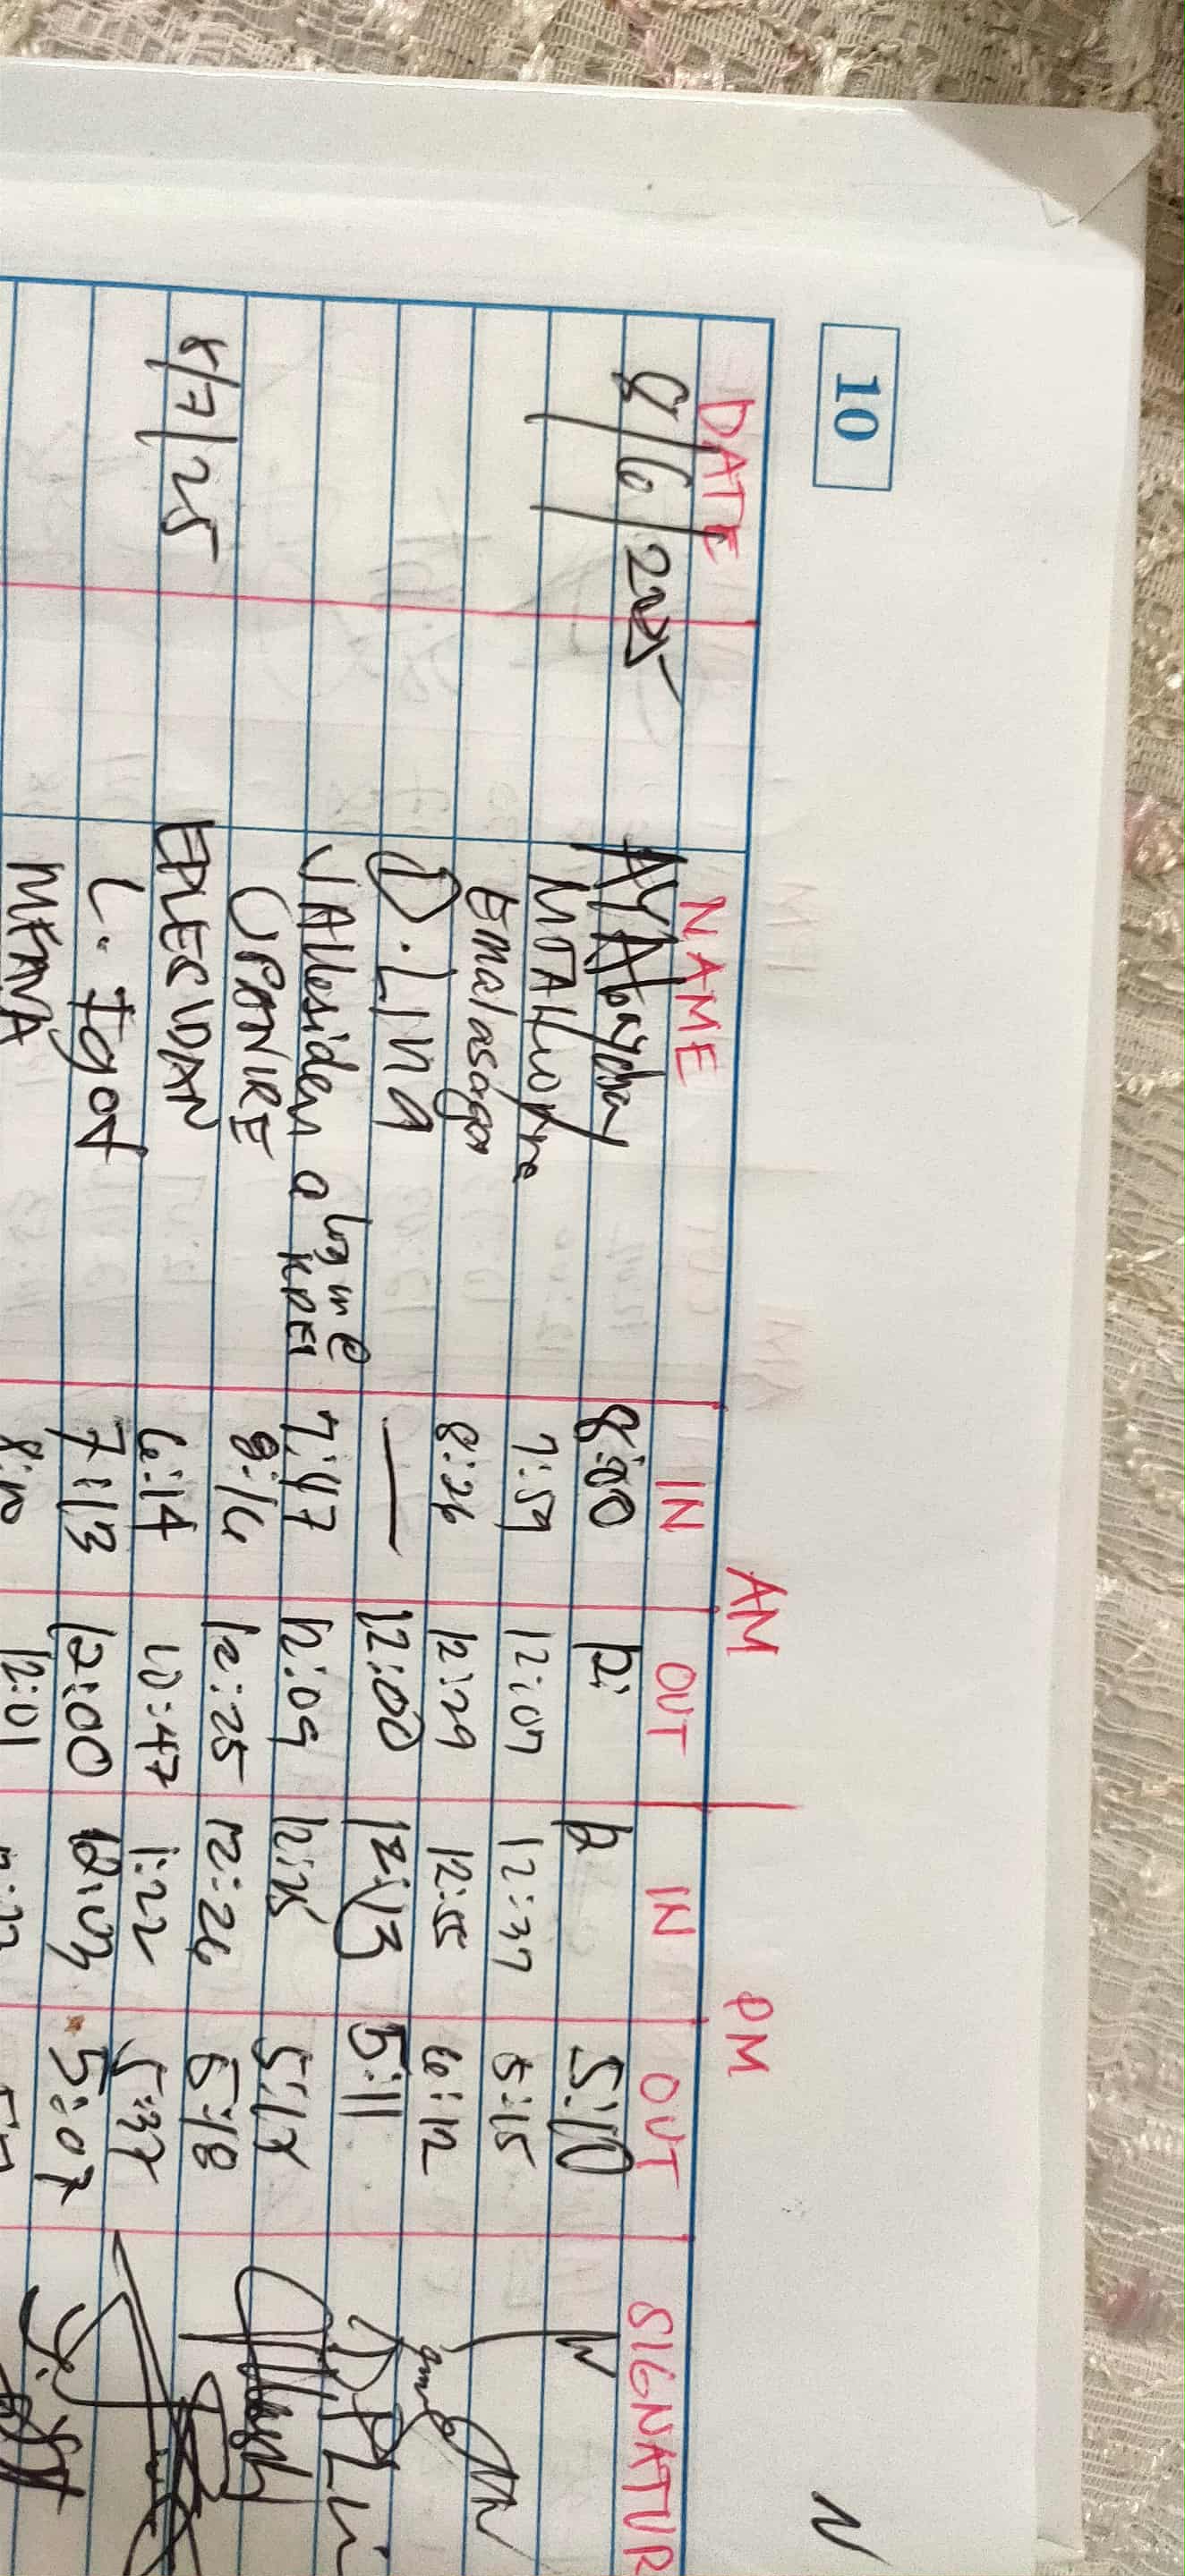 10
AM PM
DATE NAME IN OUT IN OUT SIGNATUR
8/6/2025 AYAbayday 8:00 12: 12 5:10
7:59 12:07 12:37 5:15
Emalasaga 8:26 12:29 12:55 6:12
D. Lina — 12:00 12:13 5:11
log in @
VAllesideru a KDEI 7:47 12:09 12:25 5:18
JPONIRE 8:16 12:25 12:26 5:18
8/7/25 EPLESIDAN 6:14 10:47 1:22 5:37
L. Igot 7:13 12:00 12:03 5:07
12:01